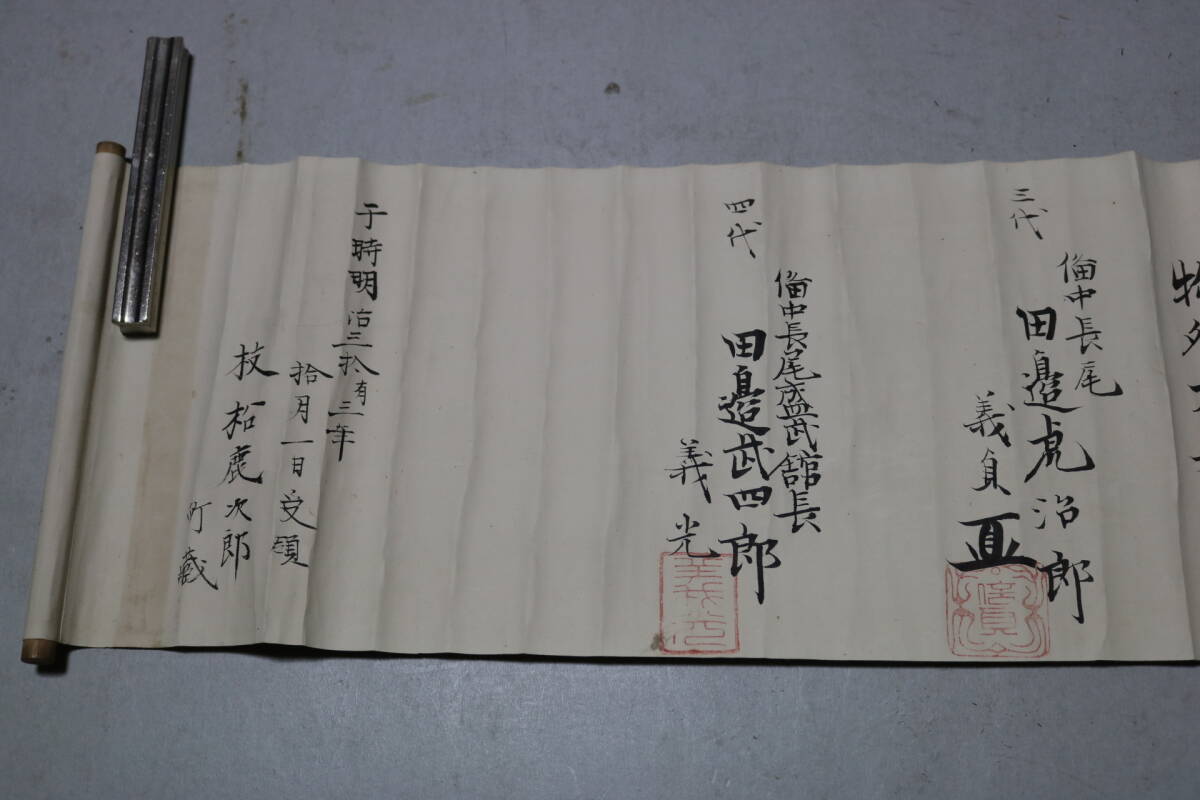 物外
三代
備中長尾
田邉虎治郎
義貞
四代
備中長尾盛武舘長
田邉武四郎
義光
于時明治三拾有三年
拾月一日受領
枝松鹿次郎
町蔵